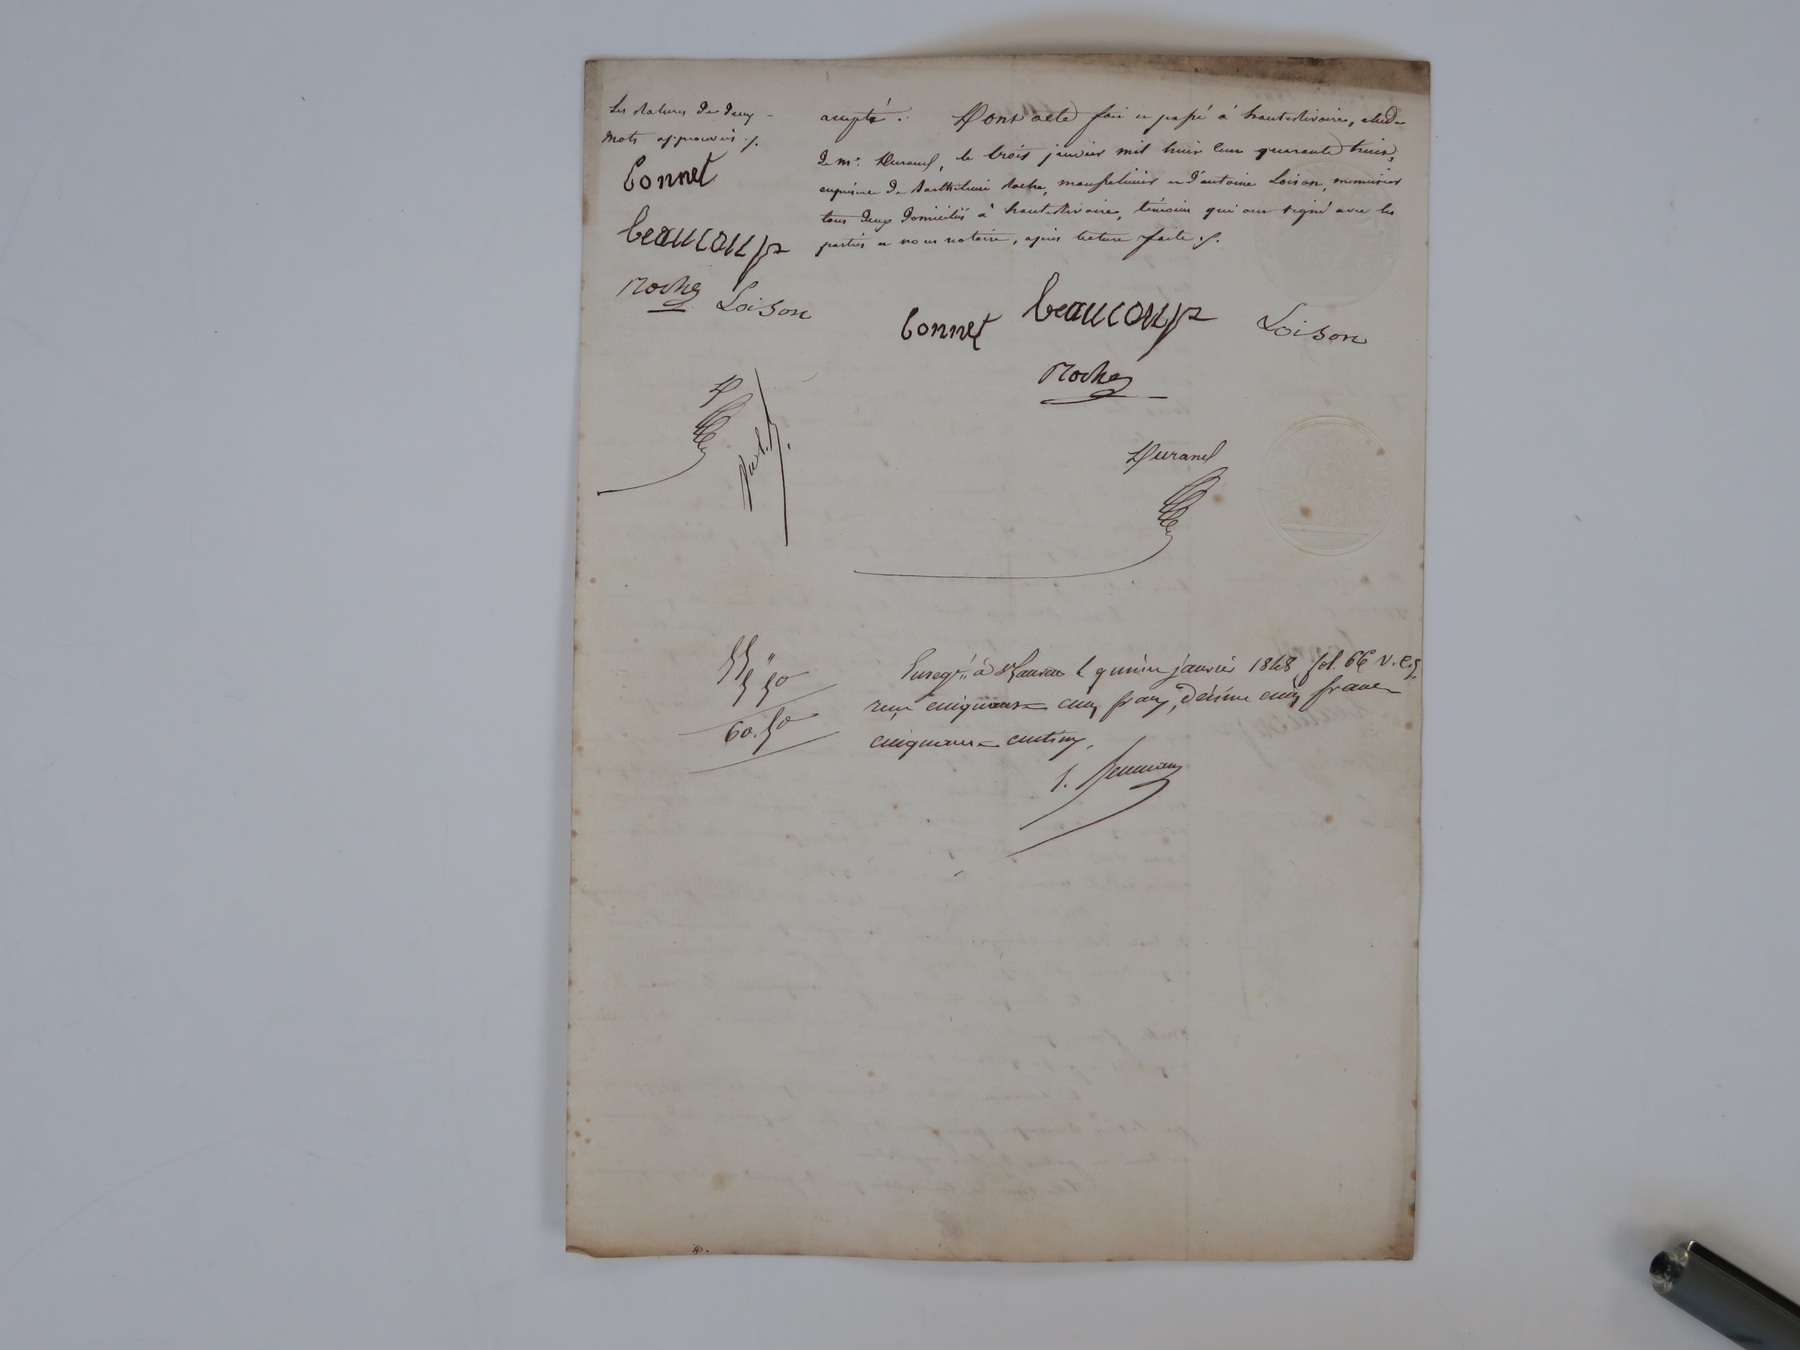 Les ratures de deux
mots approuvées ./.
bonnet
beaucoup
Roche Loison
accepté. Dont acte fait et passé à hauterivoire, étude
de me. Durand, le trois janvier mil huit cent quarante huit,
en présence de Barthélemi Roche, maréchal et d'antoine Loison, menuisier
tous deux domiciliés à hauterivoire, témoins qui ont signé avec les
parties et nous notaire, après lecture faite ./.
bonnet beaucoup Loison
Roche
D
Durand
55,,
5,50
60.50
Enregté à St Laurent le quinze janvier 1848, fol. 66 v. c.
reçu cinquante cinq francs, décime cinq francs
cinquante centimes.